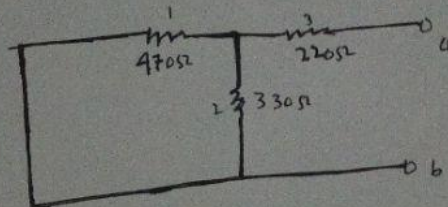 1
470Ω
3
220Ω
a
2 330Ω
b